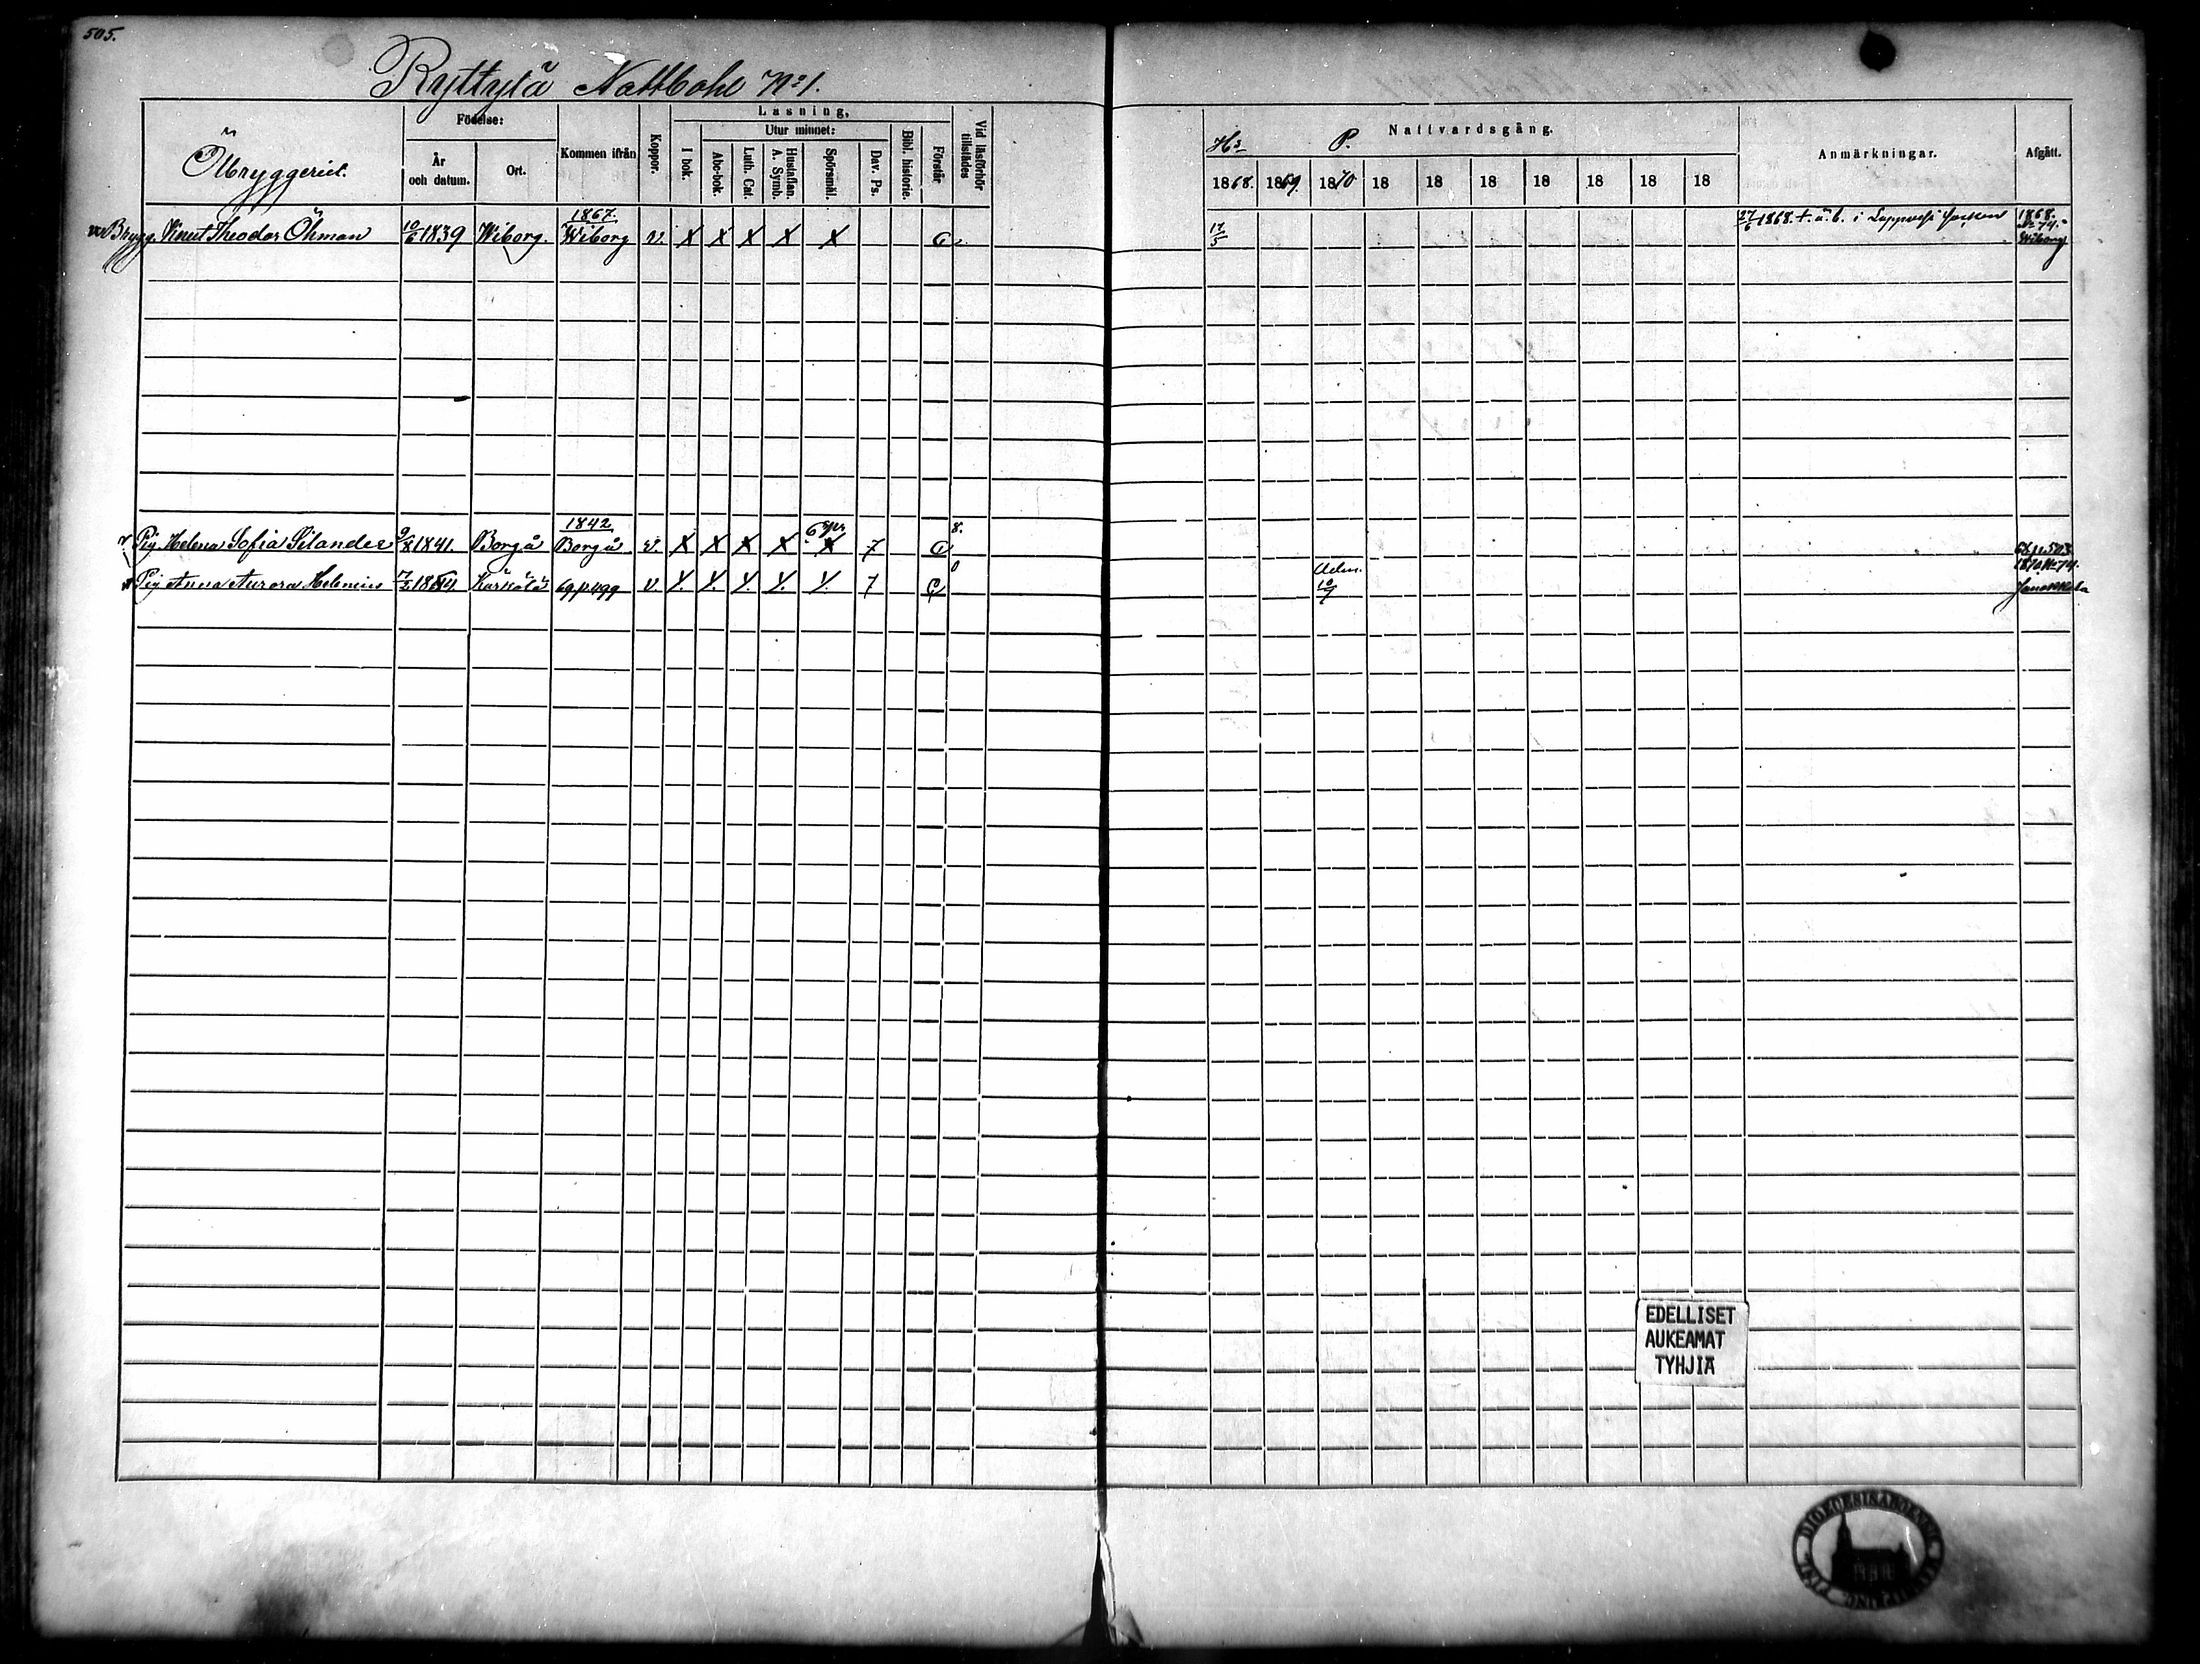 505.
Ryttylä Nattbohl No 1.
Ölbryggeriet.
Födelse:
År och datum.
Ort.
Kommen ifrån
Koppor.
Läsning.
I bok.
Utur minnet:
Abc-bok.
Luth. Cat.
Hustaflan A. Symb.
Spörsmål.
Dav. Ps.
Bibl. historie.
Förstår
Vid läsförhör tillstädes
Nattvardsgång.
P.
1868. 1869. 1870 18 18 18 18 18 18 18
Anmärkningar.
Afgått.
Brygg. Knut Theodor Öhman 10/6 1839 Wiborg. 1867 Wiborg v. X X X X X 17/5 27/6 1868. i socken 1868. No 74. Wiborg
Pig. Helena Sofia Silander 9/8 1841. Borgå 1842 Borgå v. X X X X X 7 8. 68 p. 503
Pig Anna Aurora Helenius 7/2 1844. Kärkölä 69 p 499 v. 7 10/7 1870 No 74. Janakkala
EDELLISET
AUKEAMAT
TYHJIÄ